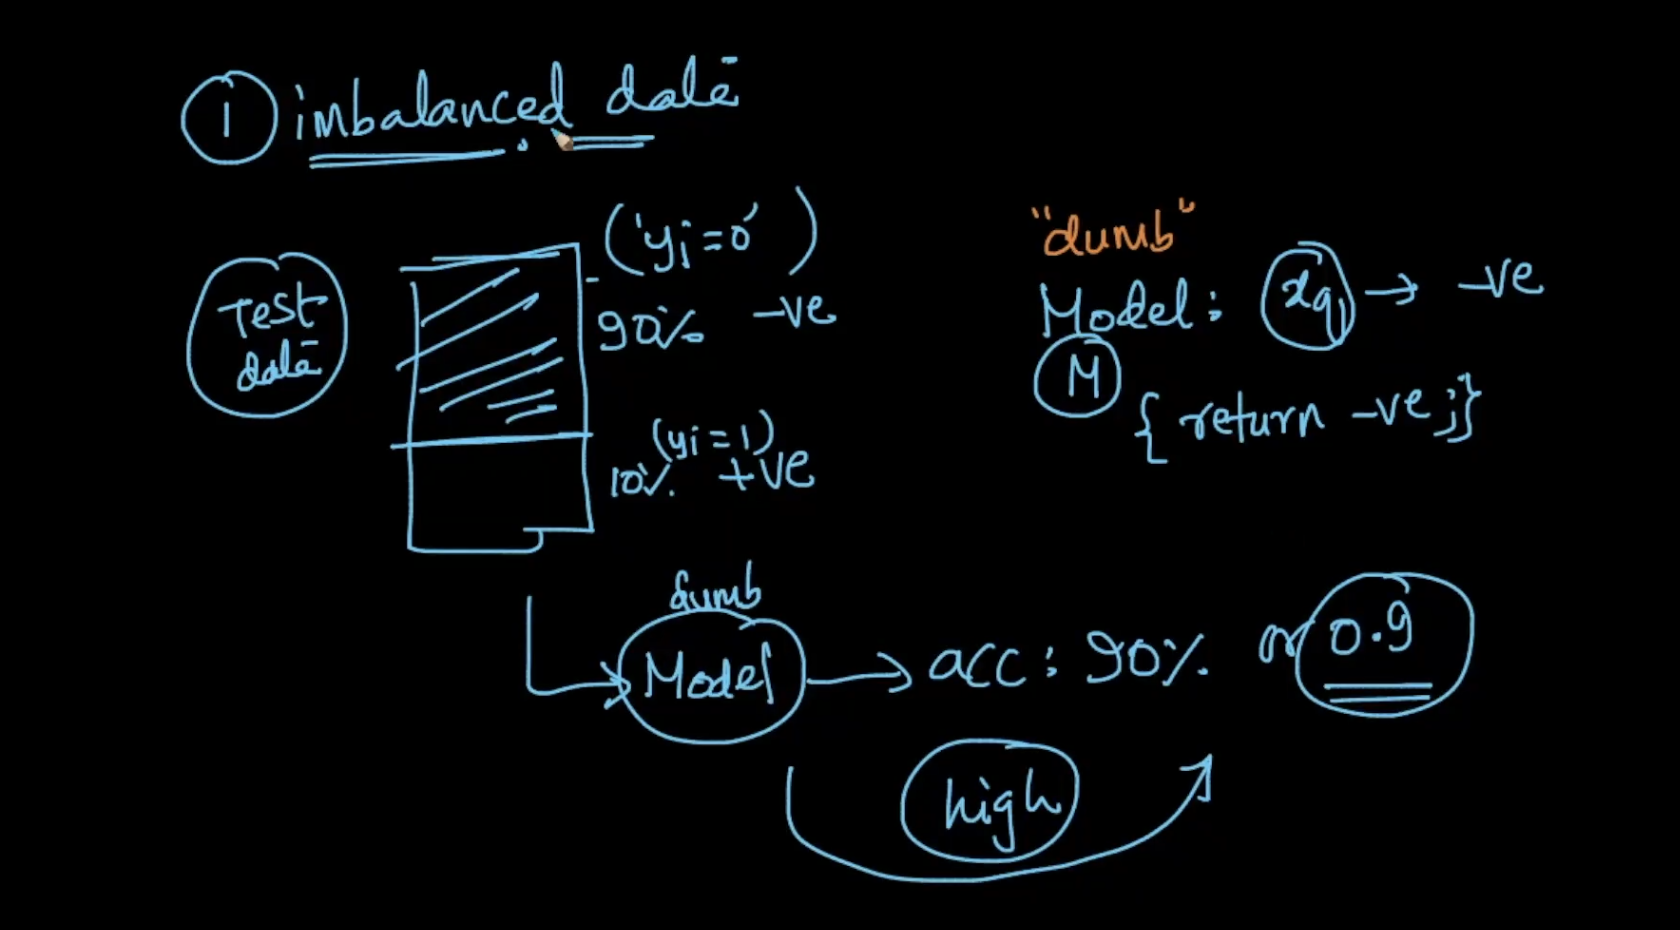 1 imbalanced data
Test
data
('yi=0')
90% -ve
(yi=1)
10% +ve
"dumb"
Model: xq → -ve
M
{ return -ve;}
dumb
Model → acc: 90% or 0.9
high